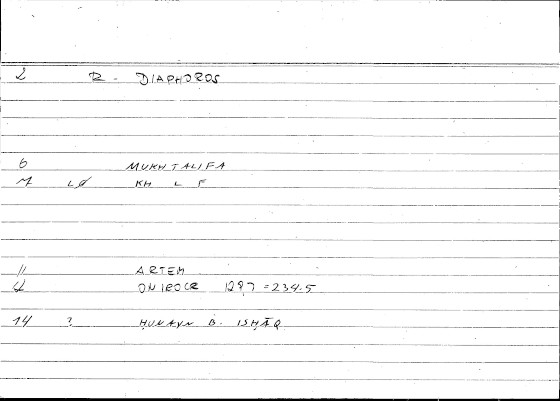 2 R - DIAPHOROS
6 MUKHTALIFA
7 LØ KH L F
11 ARTEM
ONIROCR 129,7 = 234.5
14 ? ḤUNAYN B. ISḤĀQ